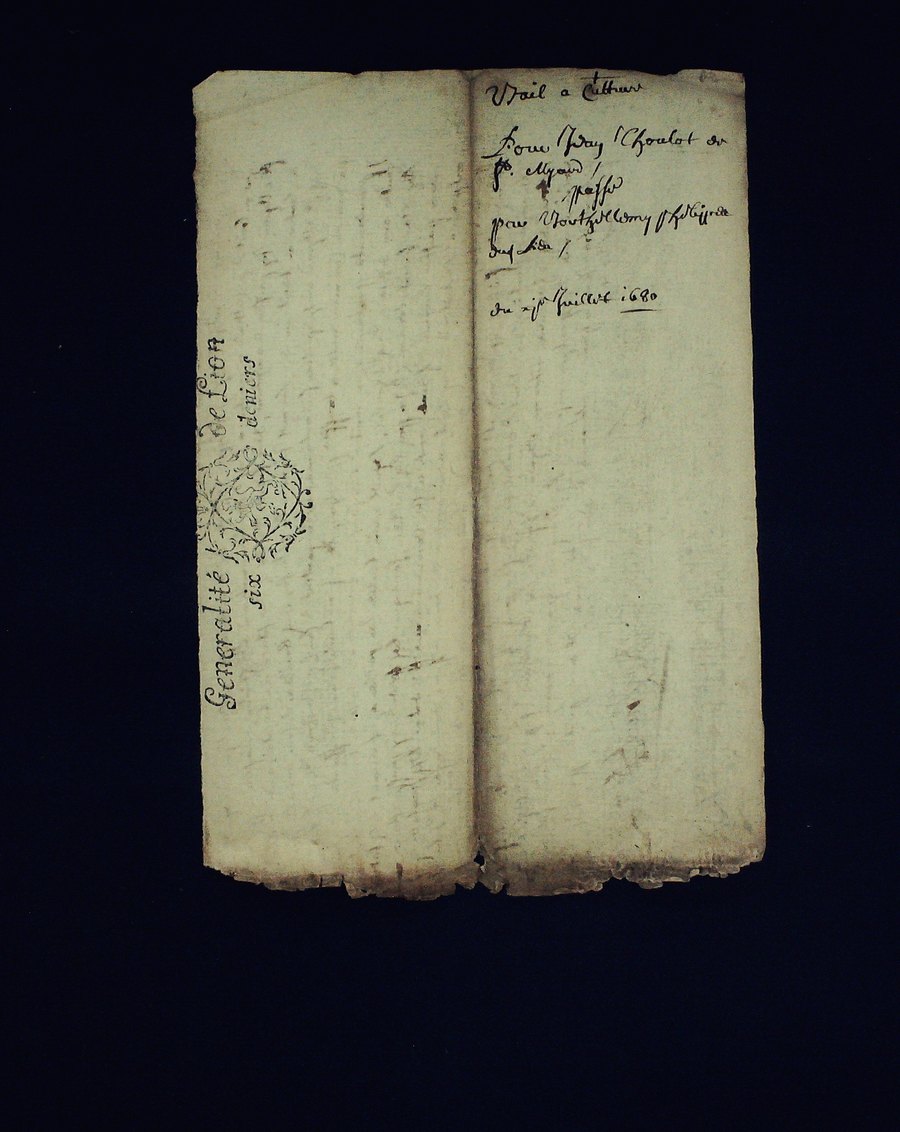 Bail a Culture
Pour Jean Choulot de
St. Myard /
passé
par Barthellemy
dud Lieu /
du Juillet 1680
Generalité de Lion
six deniers